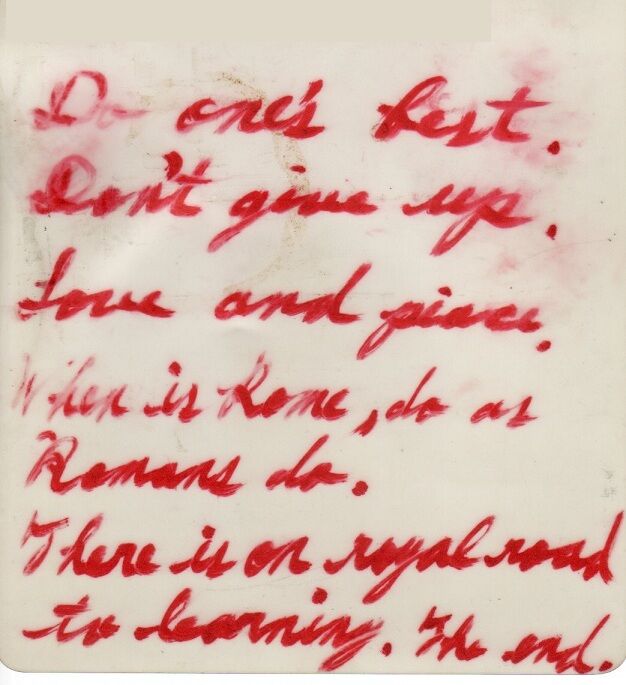 Do one's best.
Don't give up.
Love and pieace.
When is Rome, do as
Romans do.
There is on royal road
to learning. The end.